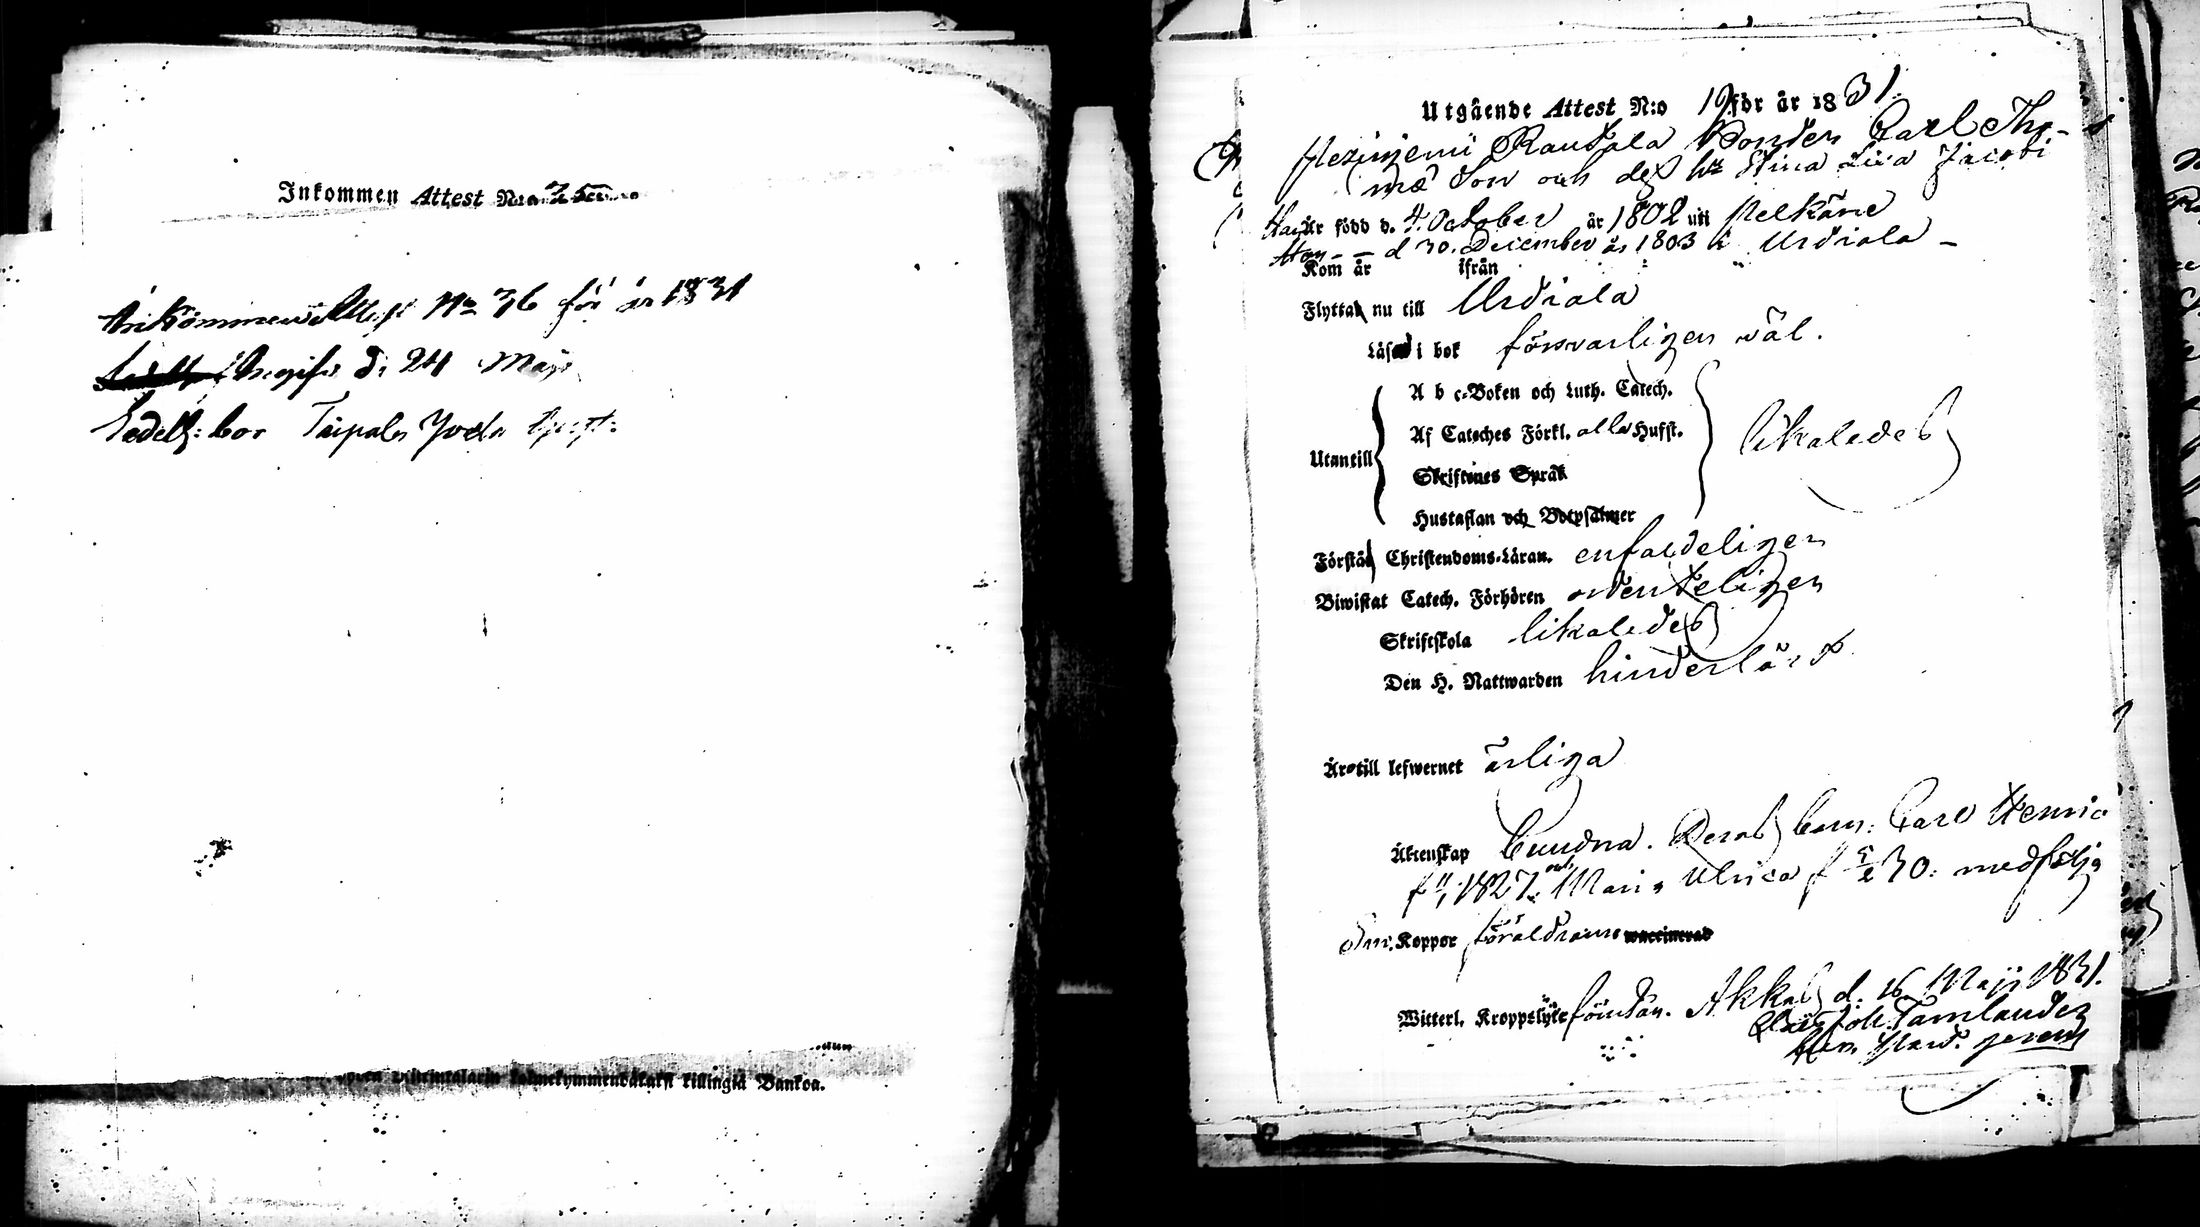 Inkommen Attest N:o
Inkommen Attest No 36 för år 1831
d: 24 Maji
Sedelb: bor Taipale Joela
killingiä Bankoa.
Utgående Attest N:o 19 för år 1831.
Mezinjemi Rautala Bonden Carl Tho-
mæ Son och dess h:u Stina Lisa Jacobi
Han Är född d. 4. October år 1802 uti Pelkäne
Hon - - d 30. December år 1803 i Urdiala -
Kom år ifrån
Flytta nu till Urdiala
Läsa i bok försvarligen väl.
A b c-Boken och Luth. Catech.
Af Cateches Förkl. alla Hufst.
Utantill likaledes
Skriftenes Språk
Hustaflan och Botpsalmer
Förstå Christendoms-Läran. enfaldeligen
Biwistat Catech. Förhören ordenteligen
Skriftskola likaledes
Den H. Nattwarden hinderlöst
Äro till lefwernet ärliga
Äktenskap bundna. Deras barn: Carl Henric
f 1827. och Maria Ulrica f 5/2 30: medfölja
Koppor föräldrarne waccinerad
Witterl. Kroppslyte förutan. Akkas d: 16 Maji 1831.
Joh: Tamlander